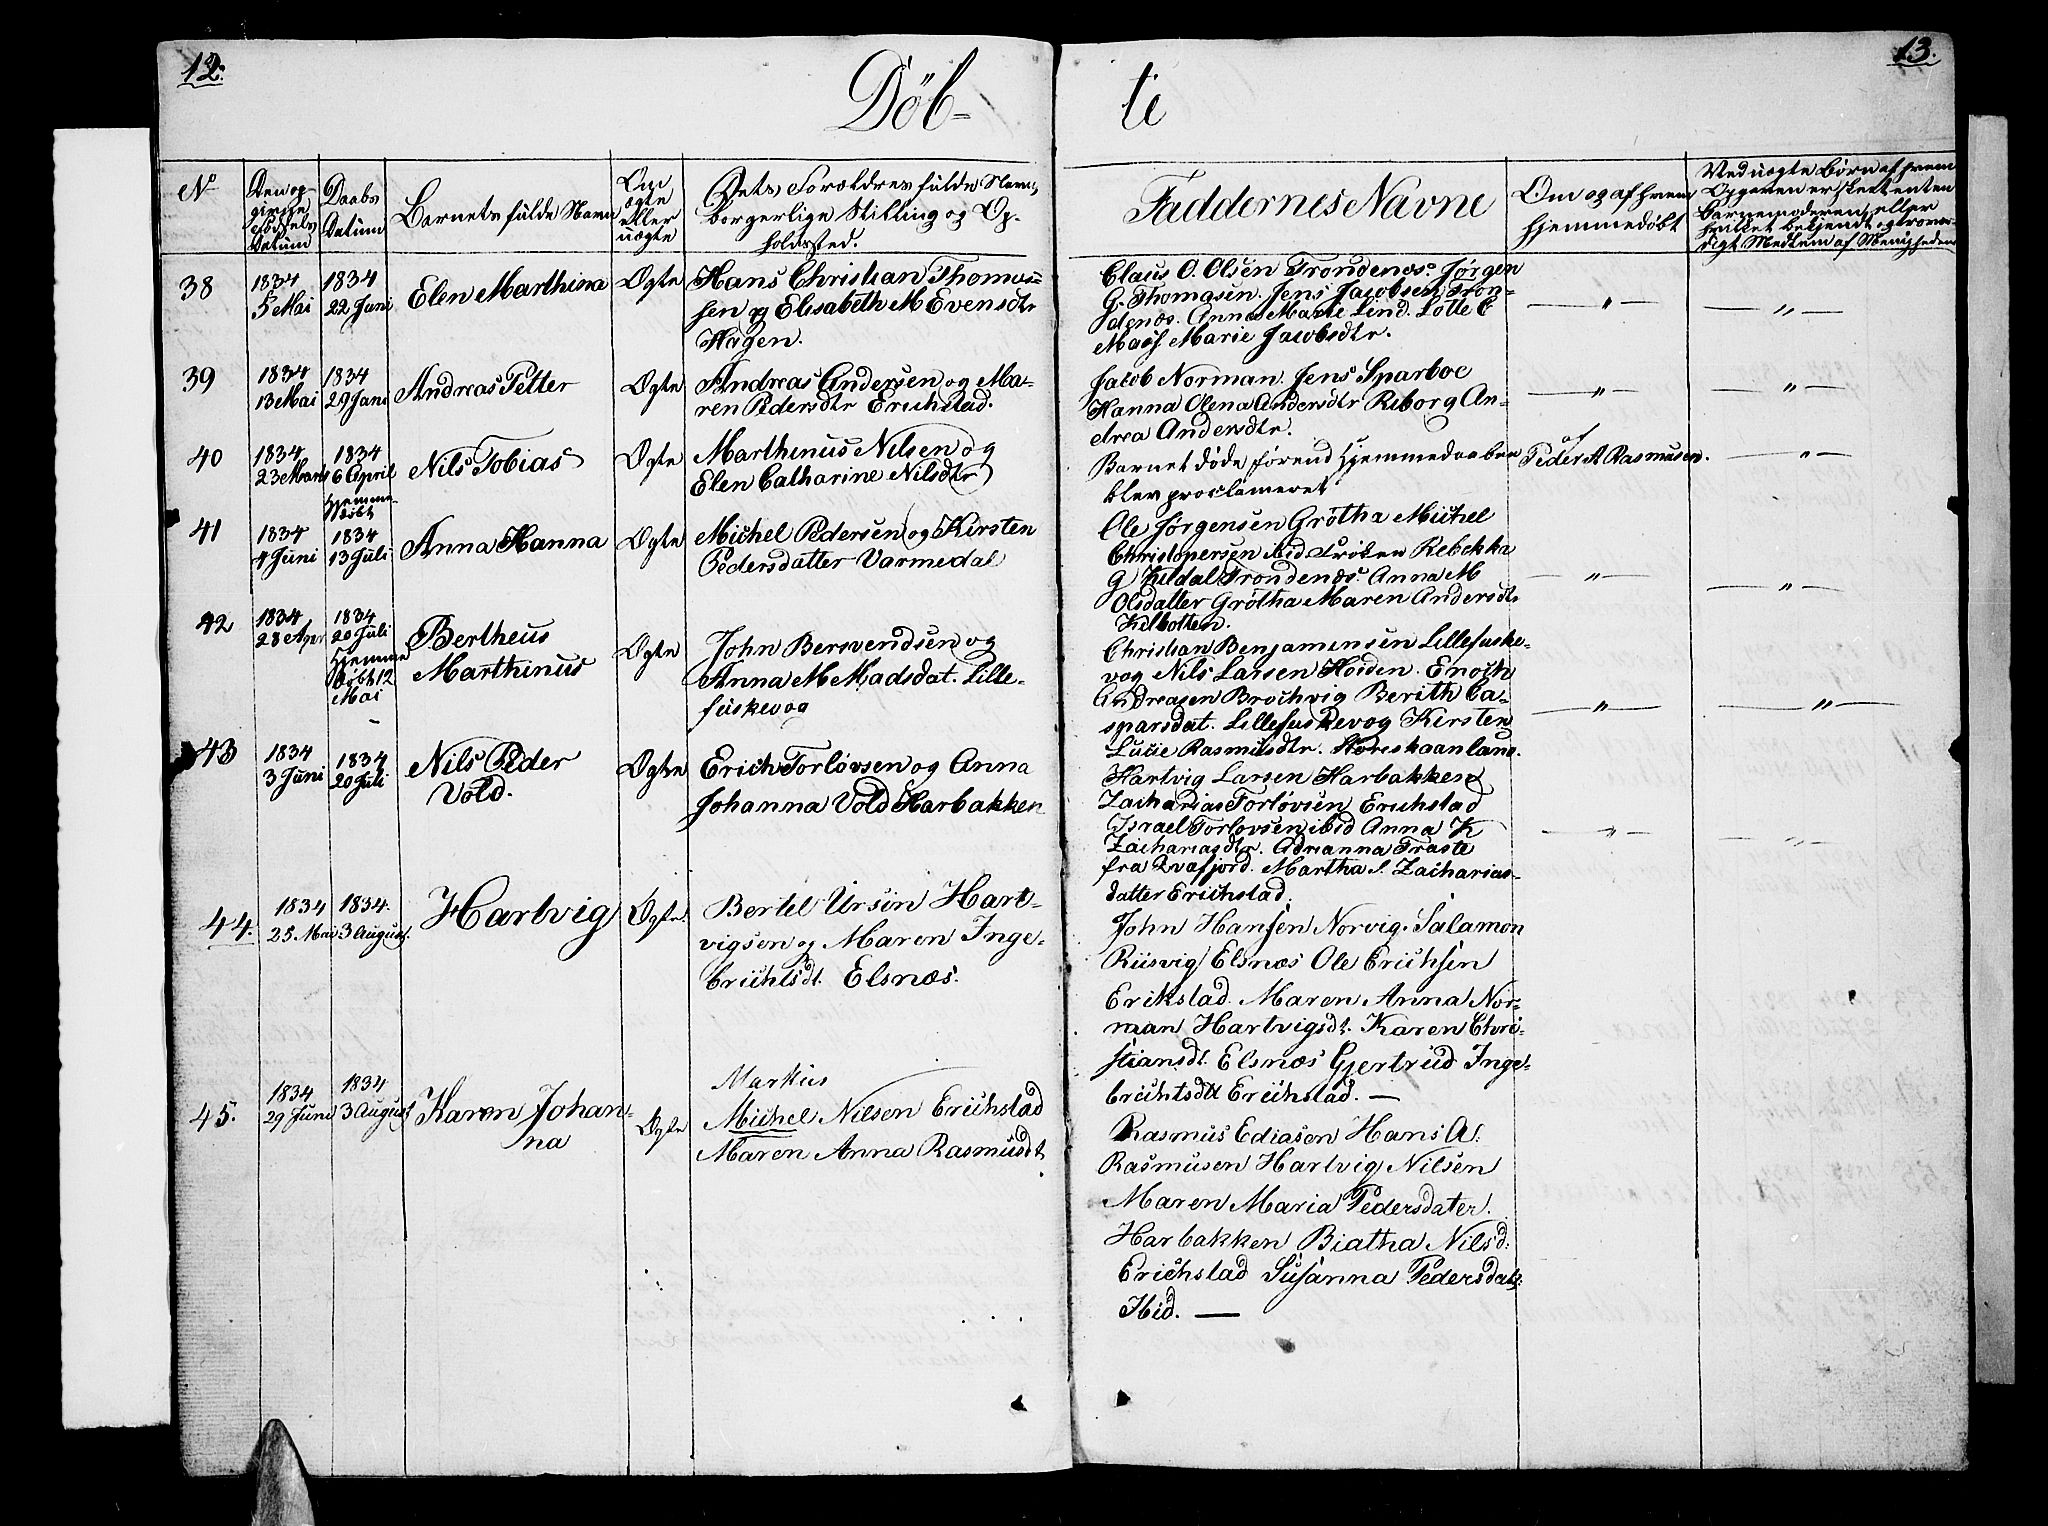 12.
13.
Döb-
te
No
Den op-
givne
Fødsels
Datum
Daabs
Datum
Barnets fulde Navn
Om
ægte
eller
uægte
Dets Forældres fulde Navn,
borgerlige Stilling og Op-
holdssted.
Faddernes Navne
Om og af hvem
hjemmedøbt
Ved uægte Børn af hvem
Opgaven er skeet enten
Barnemoderen, eller
hvilket bekjendt, og trovær-
digt Medlem af Menigheden
38
1834
5 Mai
1834
22 Juni
Elen Marthina
Ægte
Hans Christian Thomas-
sen og Elisabeth M Evensdtr
Hagen.
Claus O. Olsen Trondenæs. Jørgen
G. Thomasen. Jens Jacobsen Tron-
denæs. Anna Marie Lind. Lotte E
Marie Jacobsdtr.
39
1834
13 Mai
1834
29 Juni
Andreas Petter
Ægte
Andreas Andersen og Ma-
ren Pedersdtr Erichstad.
Jacob Norman. Jens Sparboe
Hanna Olena Andersdtr Reborg An-
drea Andersdtr.
40
1834
23 Marts
1834
6 April
Hjemme
døbt
Nils Tobias
Ægte
Marthinus Nilsen og
Elen Catharine Nilsdtr
Barnet døde førend Hjemmedaaben
blev proclameret
af
Peder A Rasmusen.
41
1834
4 Juni
1834
13 Juli
Anna Hanna
Ægte
Michel Pedersen og Kirsten
Pedersdatter Varmedal
Ole Jørgensen Grötha Michel
Christophersen ibid Frøken Rebekka
G Kildal Trondenæs. Anna M
Olsdatter Grötha Maren Andersdtr
Kilbotten.
42
1834
28 Apr
1834
20 Juli
Hjemme
døbt 12
Mai
Bertheus
Marthinus
Ægte
John Bersvendsen og
Anna M Madsdat. Lille-
fuskevog
Christian Benjaminsen Lillefuske-
vog Nils Larsen Höiden. Enoch
Andreasen Brochvig Berith Ca-
sparsdat. Lillefuskevog Kirsten
Lucie Rasmusdtr. Støreskaanland.
43
1834
3 Juni
1834
20 Juli
Nils Peder
Vold.
Ægte
Erich Torlövsen og Anna
Johanna Vold Harbakken
Hartvig Larsen Harbakken
Zacharias Torlövsen Erichstad
Israel Torlovsen ibid Anna K
Zachariasdtr. Adrianna Traste
fra Qvafjord. Martha S. Zacharias-
datter Erichstad.
44.
1834
25. Mai
1834.
3 August.
Hartvig
Ægte.
Bertel Ursin Hart-
vigsen og Maren Inge-
brichtsdt. Elsnæs.
John Hansen Norvig. Salamon
Riisvig Elsnæs Ole Erichsen
Erikstad. Maren Anna Nor-
man Hartvigsdt. Karen Chri-
stiansdt. Elsnæs Gjertrud Inge-
brichtsdtt Erichstad. —
45.
1834
29 Juni
1834
3 August
Karen Johan-
na
Ægte
Markus
Michel Nilsen Erichstad
Maren Anna Rasmusdt
Rasmus Ediasen Hans A.
Rasmusen Hartvig Nilsen
Maren Maria Pedersdater.
Harbakken Biatha Nilsd:
Erichstad Susanna Pedersdat:
Ibid. —